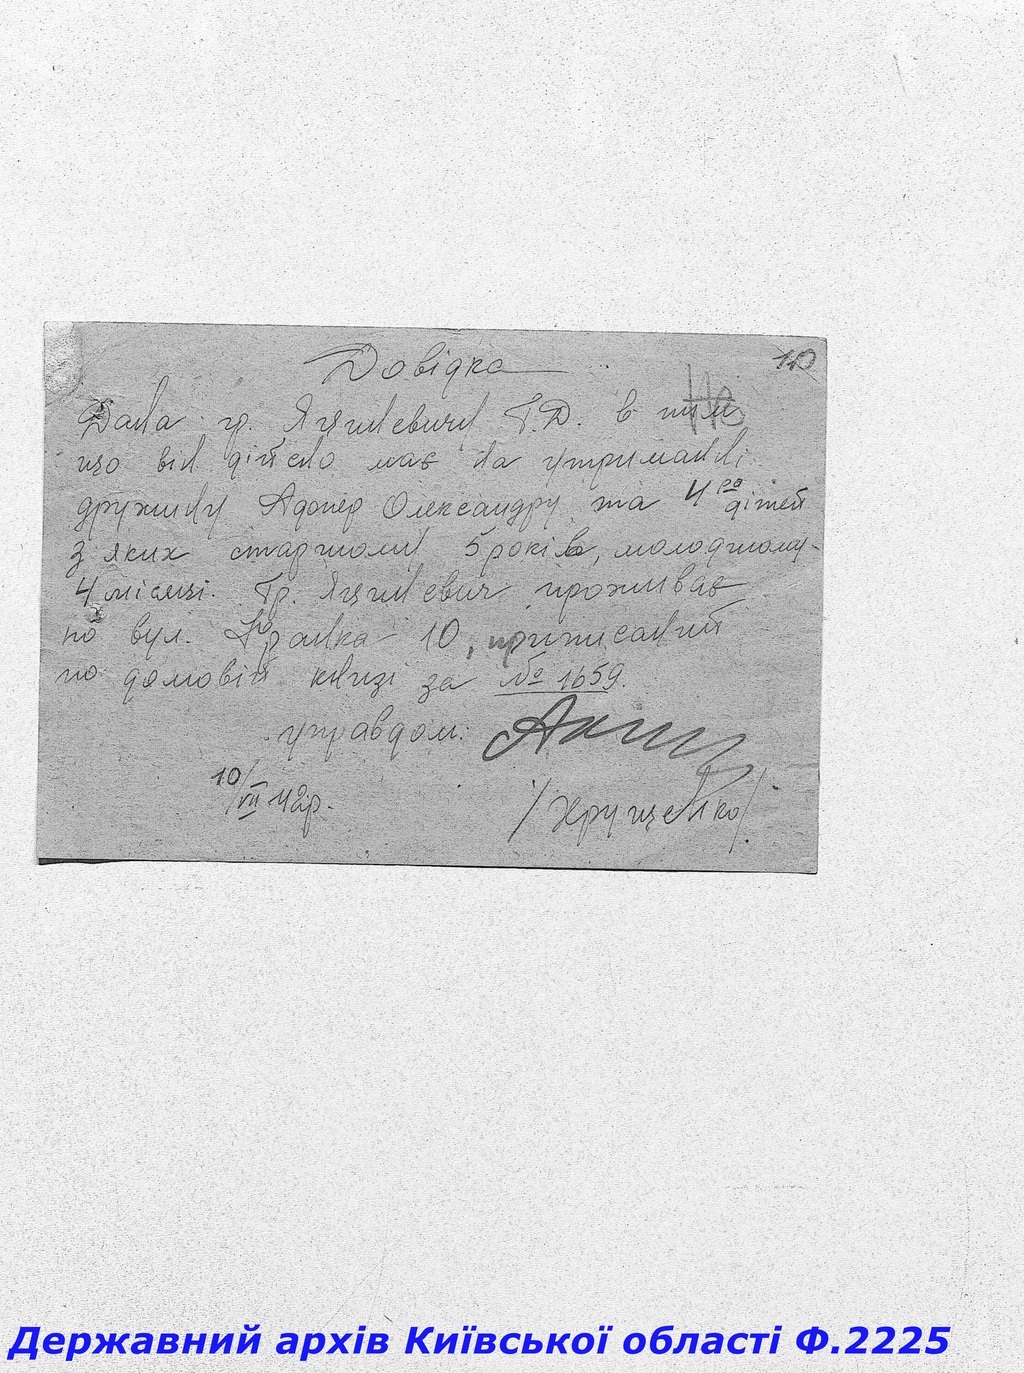 Довідка
110
Дана гр. Яцкевичу Г.Д. в тим
що він дійсно має на утриманні
дружину Адопер Олександру та 4ро дітей
з яких старшому 5 років, молодшому-
4 місяці. Гр. Яцкевич проживає
по вул. Франка 10, приписаний
по домовій книзі за № 1659.
управдом:
10/VII 42р.
/Хрущенко/
Державний архів Київської області Ф.2225